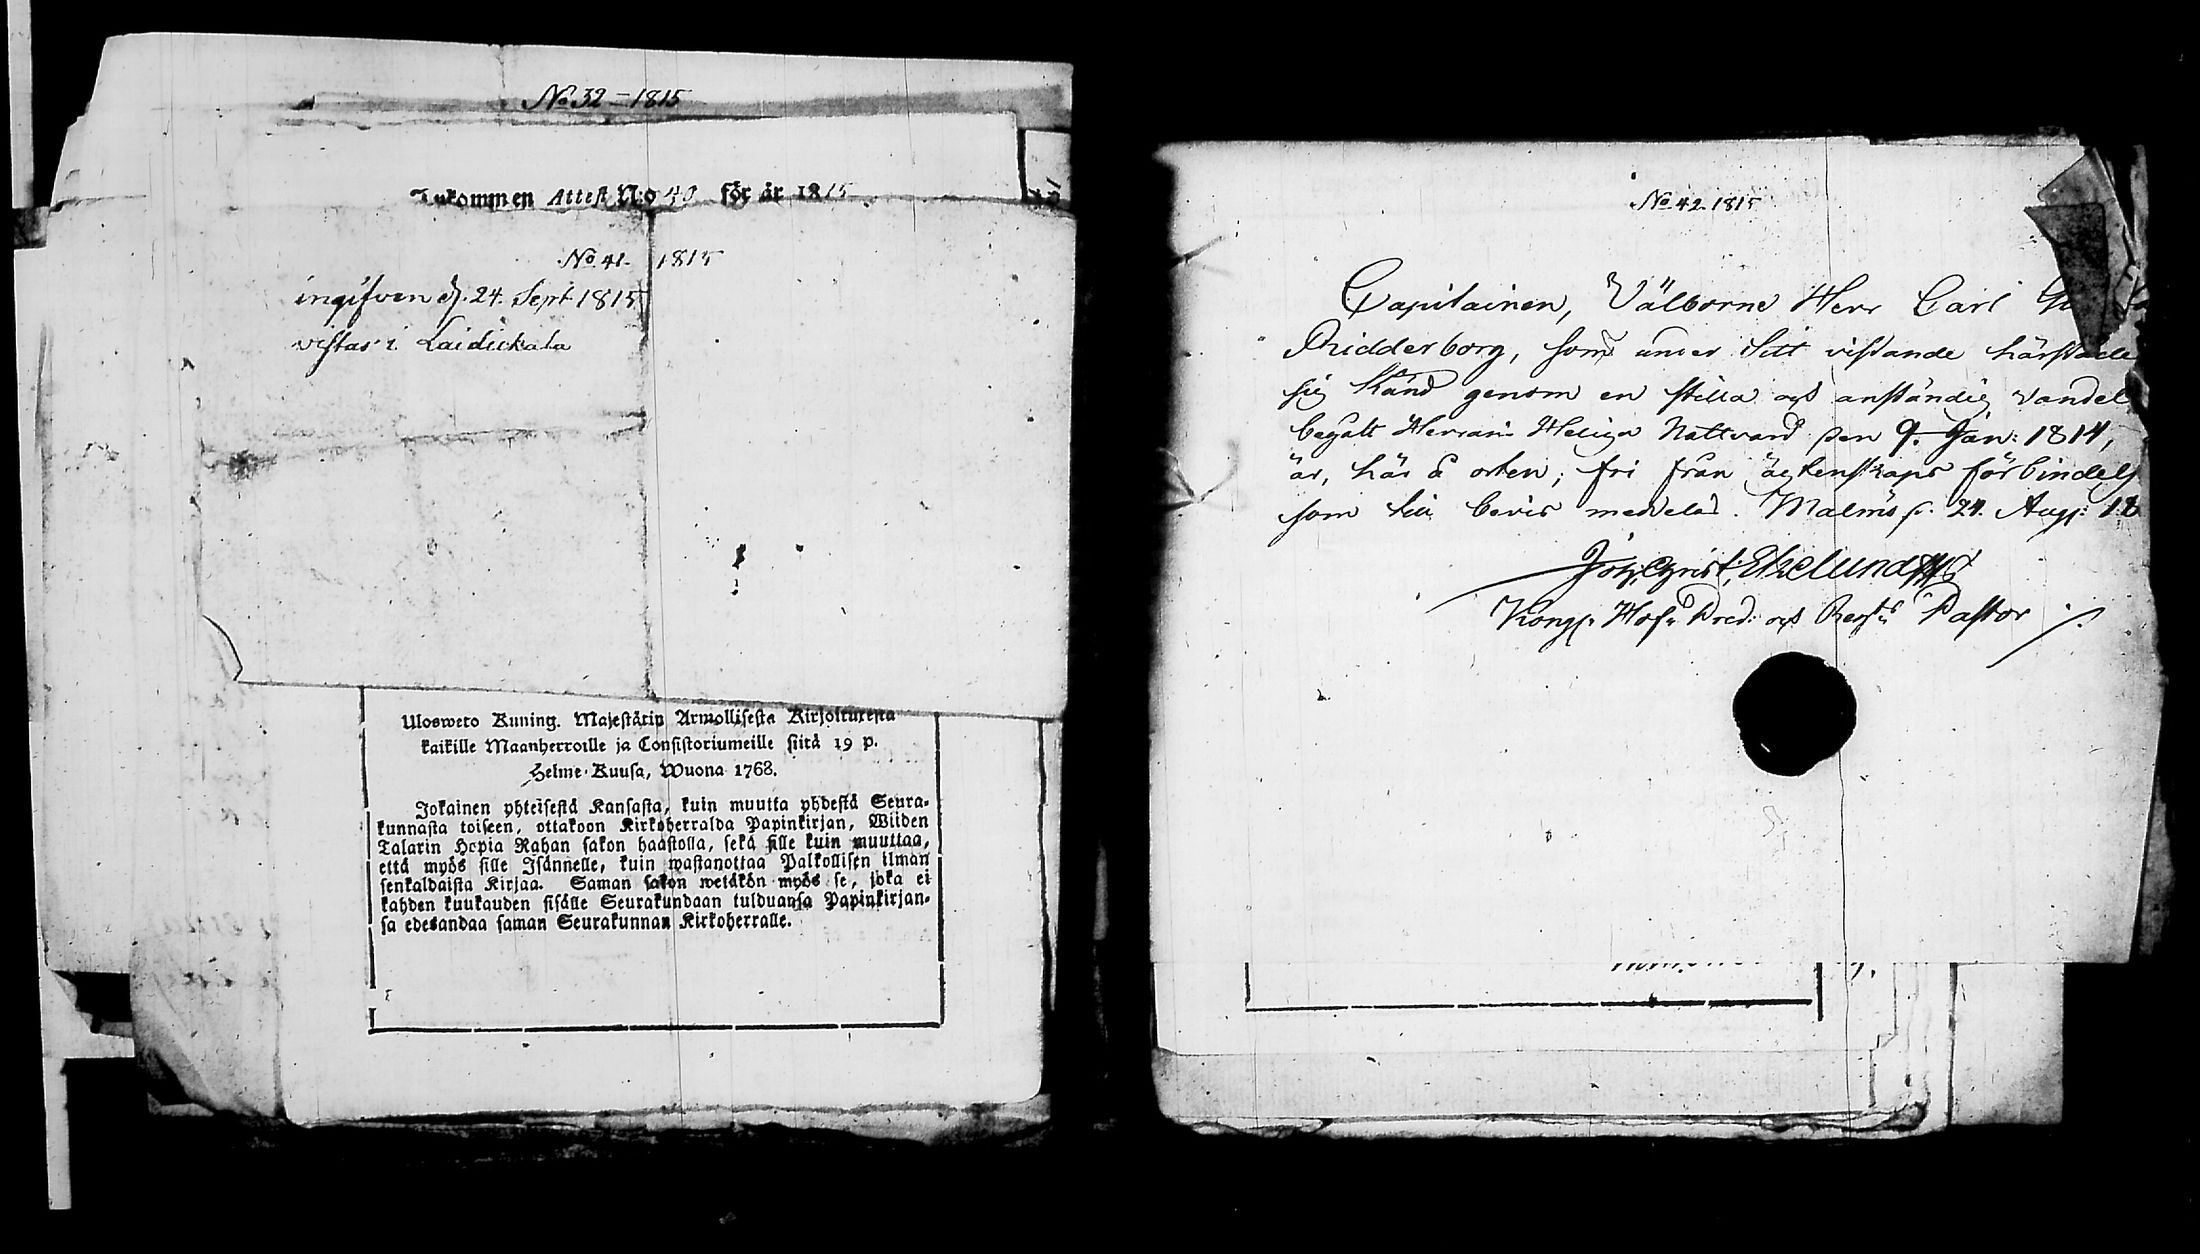 No 32 - 1815
Inkommen Attest N:o 40 för år 1815
No 41. 1815
ingifven d. 24. Sept 1815
vistas i Laidickala
Ulosweto Kuning. Majestätin Armollisesta Kirjoituxesta
kaikille Maanherroille ja Consistoriumeille siitä 19 p.
Helme-Kuusa, Wuona 1768.
Jokainen yhteisestä Kansasta, kuin muutta yhdestä Seura-
kunnasta toiseen, ottakoon Kirkoherralda Papinkirjan, Wiiden
Talarin Hopia Rahan sakon haastolla, sekä sille kuin muuttaa,
että myös sille Isännelle, kuin wastanottaa Palkollisen ilman
senkaldaista Kirjaa. Saman sakon wetäkön myös se, joka ei
kahden kuukauden sisälle Seurakundaan tulduansa Papinkirjan-
sa edesandaa saman Seurakunnan Kirkoherralle.
No 42. 1815
Capitainen, Välborne Herr Carl
Ridderborg, som under Sitt vistande härstäde
sig känd genom en stilla och anständig vandel
begått Herrans Heliga Nattvard den 9. Jan: 1814,
är, här å orten, fri från äktenskaps förbindels
som till bevis meddelas. Malmö d. 24. Aug: 18
Joh. Christ. Ekelund
Kongl. Hof Pred: och Pastor